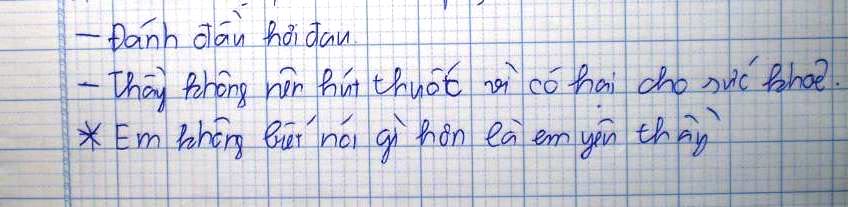 - Đánh đầu hơi đau.
- Thầy không nên hút thuốt vì có hại cho sức khoẻ.
* Em không biết nói gì hơn là em yên thầy